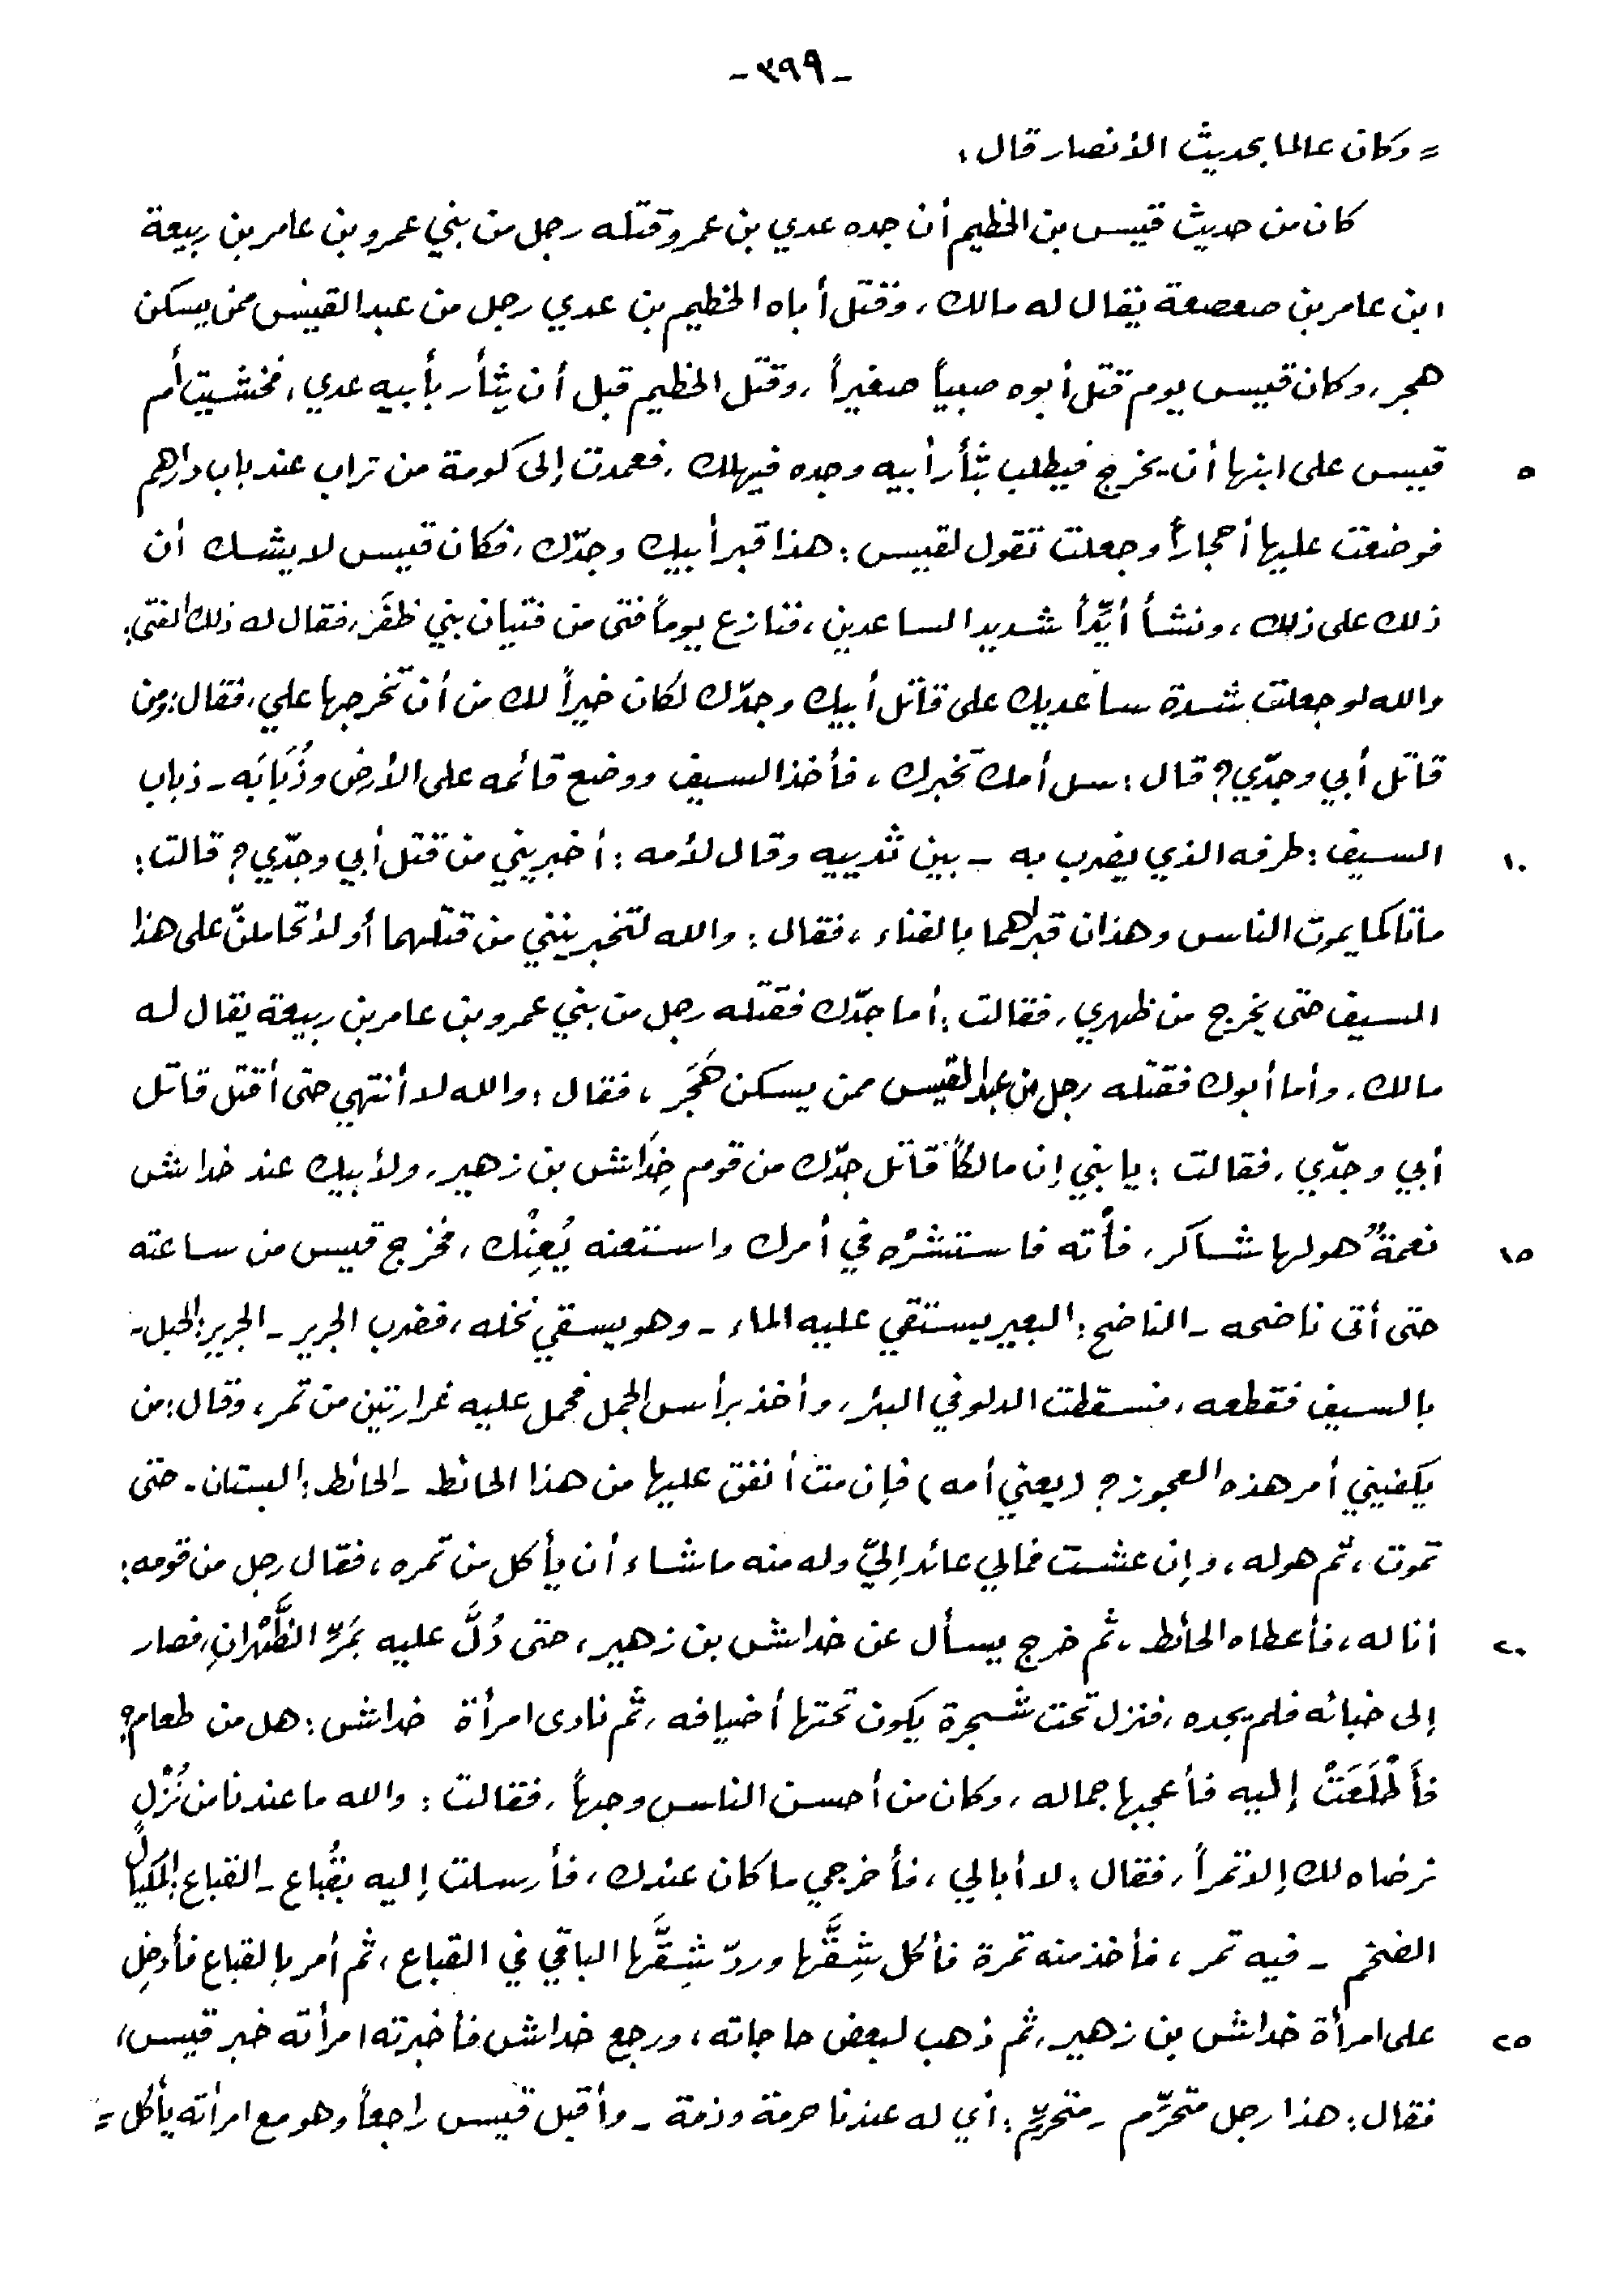 -٣٩٩-
= وكان عالما بحديث الأنصار قال:
كان من حديث قيس بن الخطيم أن جده عدي بن عمرو قتله رجل من بني عمرو بن عامر بن ربيعة
ابن عامر بن صعصعة يقال له مالك، وقتل أباه الخطيم بن عدي رجل من عبد القيس ممن يسكن
هجر، وكان قيس يوم قتل أبوه صبياً صغيراً، وقتل الخطيم قبل أن يثأر بأبيه عدي، فخشيت أم
قيس على ابنها أن يخرج فيطلب بثأر أبيه وجده فيهلك، فعمدت إلى كومة من تراب عند باب دارهم ٥
فوضعت عليها أحجاراً وجعلت تقول لقيس: هذا قبر أبيك وجدّك، فكان قيس لا يشك أن
ذلك على ذلك، ونشأ أيِّداً شديد الساعدين، فنازع يوماً فتى من فتيان بني ظفَر، فقال له ذلك الفتى:
والله لو جعلت شدة ساعديك على قاتل أبيك وجدّك لكان خيراً لك من أن تخرجها علي، فقال: ومن
قاتل أبي وجدّي؟ قال: سل أمك تخبرك، فأخذ السيف ووضع قائمه على الأرض وذُبَابَه - ذباب
السيف: طرفه الذي يضرب به - بين ثدييه وقال لأمه: أخبريني من قتل أبي وجدّي؟ قالت: ١٠
ماتا كما يموت الناس وهذان قبراهما بالفناء، فقال: والله لتخبرينني من قتلهما أو لأتحاملنّ على هذا
السيف حتى يخرج من ظهري، فقالت: أما جدّك فقتله رجل من بني عمرو بن عامر بن ربيعة يقال له
مالك، وأما أبوك فقتله رجل من عبد القيس ممن يسكن هَجَر، فقال: والله لا أنتهي حتى أقتل قاتل
أبي وجدّي، فقالت: يا بني إن مالكاً قاتل جدّك من قوم خِدَاش بن زهير، ولأبيك عند خداش
نعمةٌ هو لها شاكر، فأته فاستشرْه في أمرك واستعنه يُعِنْك، فخرج قيس من ساعته ١٥
حتى أتى ناضحه - الناضح: البعير يستقي عليه الماء - وهو يسقي نخله، فضرب الجرير - الجرير: الحبل -
بالسيف فقطعه، فسقطت الدلو في البئر، وأخذ برأس الجمل فحمل عليه غرارتين من تمر، وقال: من
يكفيني أمر هذه العجوز؟ (يعني أمه) فإن مت أنفق عليها من هذا الحائط - الحائط: البستان - حتى
تموت، ثم هو له، وإن عشت فمالي عائد إليّ وله منه ما شاء أن يأكل من تمره، فقال رجل من قومه:
أنا له، فأعطاه الحائط، ثم خرج يسأل عن خداش بن زهير، حتى دُلَّ عليه بمَرِّ الظَّهْرانِ، فصار ٢٠
إلى خبائه فلم يجده، فنزل تحت شجرة يكون تحتها أضيافه، ثم نادى امرأة خداش: هل من طعام؟
فأَطْلَعَتْ إليه فأعجبها جماله، وكان من أحسن الناس وجهاً، فقالت: والله ما عندنا من نُزْلٍ
نرضاه لك إلا تمراً، فقال: لا أبالي، فأخرجي ما كان عندك، فأرسلت إليه بقُباع - القباع: المكيال
الضخم - فيه تمر، فأخذ منه تمرة فأكل شِقَّها وردّ شِقَّها الباقي في القباع، ثم أمر بالقباع فأدخِل
على امرأة خداش بن زهير، ثم ذهب لبعض حاجاته، ورجع خداش فأخبرته امرأته خبر قيس، ٢٥
فقال: هذا رجل متحرّم - متحرّم: أي له عندنا حرمة وذمة - وأقبل قيس راجعاً وهو مع امرأته يأكل =